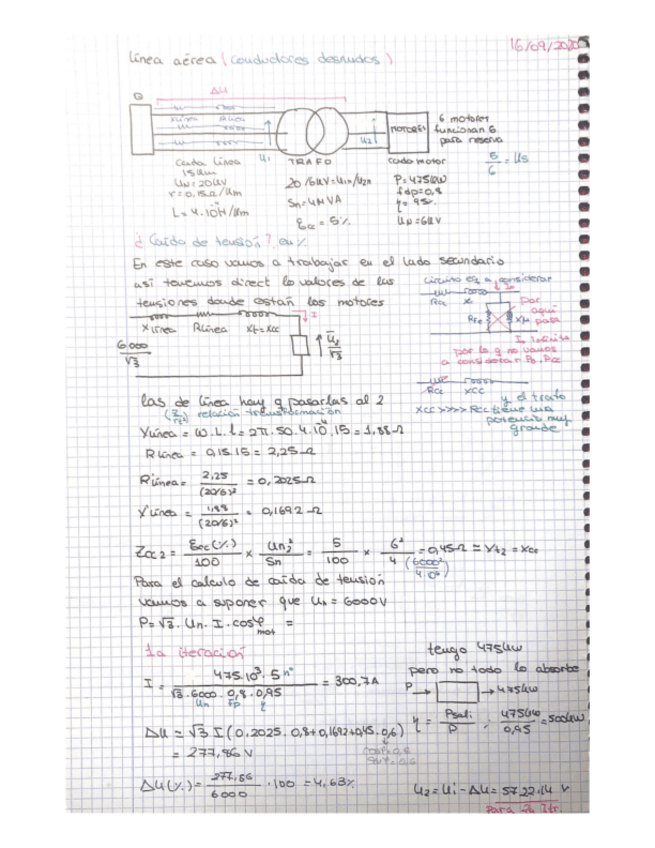 16/09/2020
Línea aérea (conductores desnudos)
ΔU
G
Xlínea Rlínea
U1
U2
MOTORES
6 motores
funcionan 6
para reserva
Cada línea
15 km
UN=20kV
r=0,15Ω/km
L=4.10⁻⁴H/km
TRAFO
20/6kV=U1n/U2n
Sn=4MVA
Ecc=5%
cada motor
P=475kW
fdp=0,8
η=95%
UN=6kV
5/6 = Us
¿Caída de tensión? en %
En este caso vamos a trabajar en el lado secundario
así tenemos direct lo valores de las
tensiones donde están los motores
circuito eq a considerar
Rcc Xc Io
RFe Xμ
por aquí pasa
Io
por lo q no vamos
a considerar Po, Pcc
Rcc XCC
Xcc >>>> Rcc
y el trafo
tiene una
potencia muy
grande
Xlínea Rlínea Xt=Xcc
I
6000/√3
U2/√3
las de línea hay q pasarlas al 2
(Z/rt²) relación transformación
Xlínea = W.L.l = 2π.50.4.10⁻⁴.15 = 1,88Ω
Rlínea = 0,15.15 = 2,25Ω
R'línea = 2,25/(20/6)² = 0,2025Ω
X'línea = 1,88/(20/6)² = 0,1692Ω
Zcc2 = Ecc(%)/100 x Un2²/Sn = 5/100 x 6²/4 (6000²/4.10⁶) = 0,45Ω = Xt2 = Xcc
Para el calculo de caída de tensión
vamos a suponer que Us = 6000V
P=√3.Un.I.cosφmot =
1a iteración
I = 475.10³.5 nº/√3.6000.0,8.0,95 = 300,7A
Un fp η
tengo 475kW
pero no todo lo absorbe
P → → 475kW
η = Psali/P ; 475kW/0,95 = 500kW
ΔU = √3 I (0,2025.0,8+0,1692+0,45.0,6)
= 277,86 V
ΔU(%) = 277,86/6000 .100 = 4,63%
U2 = Ui - ΔU = 5722,14 V
Para 2a Itr.